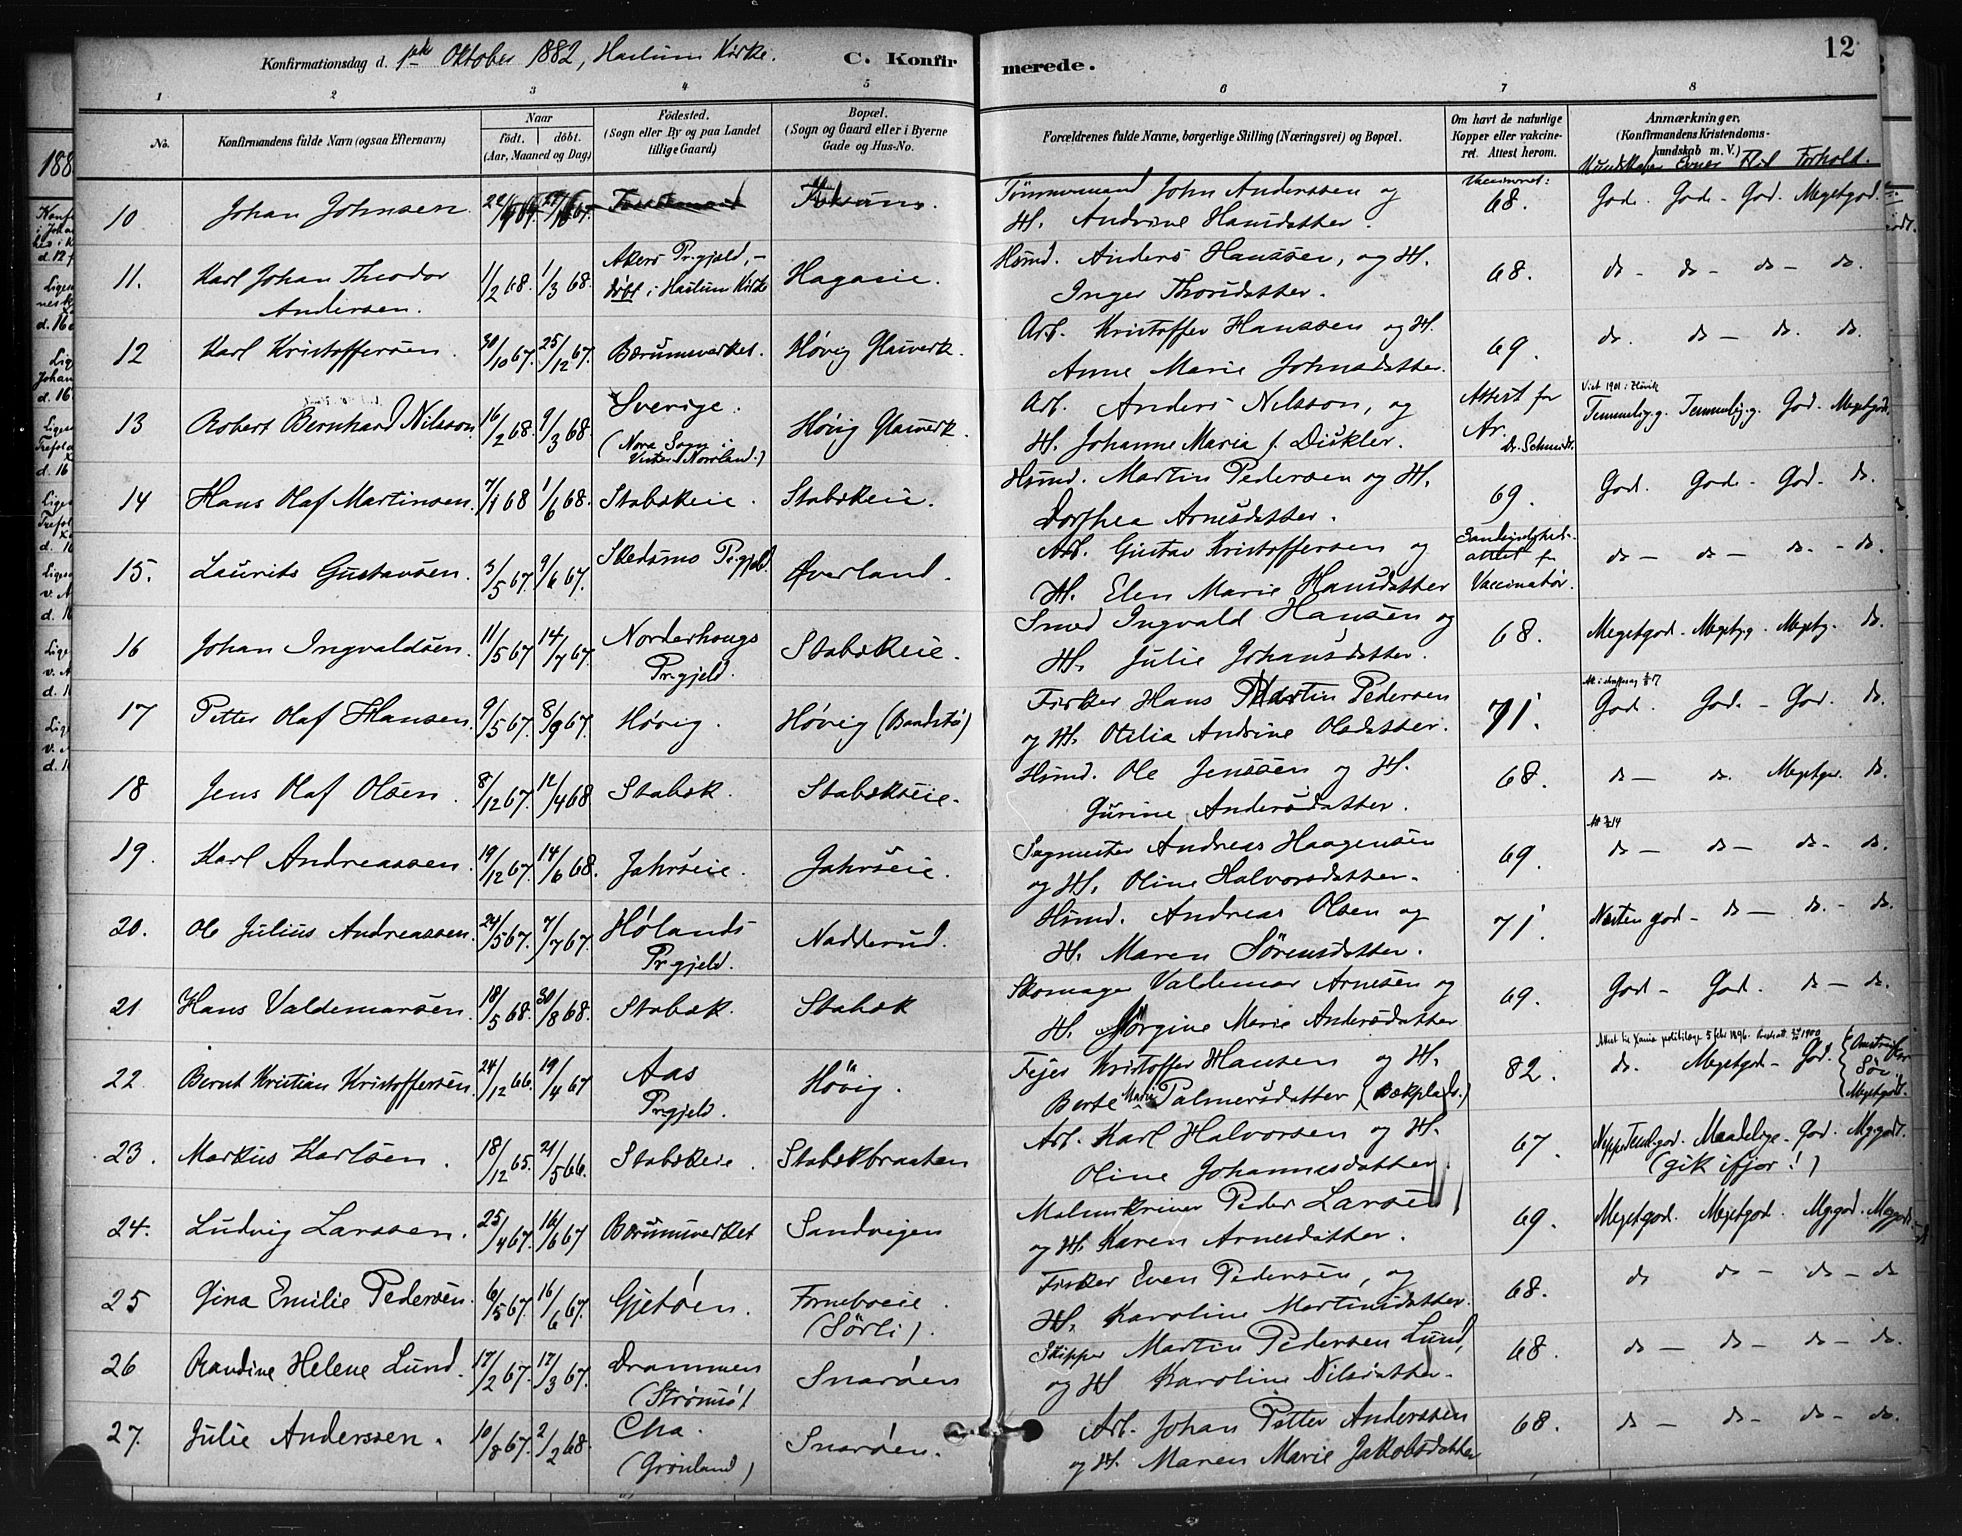 Konfirmationsdag d. 1ste Oktober 1882, Haslum Kirke. C. Konfirmerede. 12
1 2 3 4 5 6 7 8
No. Konfirmandens fulde Navn (ogsaa Efternavn) Naar født. døbt. (Aar, Maaned og Dag) Fødested. (Sogn eller By og paa Landet tillige Gaard) Bopæl. (Sogn og Gaard eller i Byerne Gade og Hus-No. Forældrenes fulde Navne, borgerlige Stilling (Næringsvei) og Bopæl. Om havt de naturlige Kopper eller vakcineret. Attest herom. Anmærkninger. (Konfirmandens Kristendomskundskab m. V.)
Kundskaber Evner Flid Forhold.
10 Johan Johnsen. Tømmermand John Anderssen og H. Andrine Hansdatter. Vaccineret: 68. God. God - God. Megetgod.
11. Karl Johan Theodor Andersen. 1/2 68. 1/3 68. Akers Prgjeld, - døbt i Haslum Kirke Hagaeie. Hsmd. Anders Hanssen, og H. Inger Thorsdatter. 68. do - do - do - do.
12 Karl Kristoffersen. 30/10 67. 25/12 67. Bærumsverket. Høvig Glasverk. Arb. Kristoffer Hanssen og H. Anne Marie Johnsdatter. 69. do. do - do. do.
13 Robert Bernhard Nilsson. 16/2 68. 9/3 68. Sverige. (Nora Sogn i Norrland.) Høvig Glasverk. Arb. Anders Nilsson, og H. Johanne Maria f. Dickler. Attest for Ar. Dr. Schmidt. Viet 1901 i Høvik Temmelig g. Temmelig g. God. Megetgodt.
14 Hans Olaf Martinsen. 7/1 68 1/6 68. Stabækeie. Stabækeie. Hsmd. Martin Pedersen og H. Dorthea Arnesdatter. 69. God. God - God. do.
15. Laurits Gustavsen. 3/5 67. 9/6 67. Skedsmo Prgjeld. Øverland. Arb. Gustav Kristoffersen og H. Elen Marie Hansdatter attest f Vaccinatør. do - do - do. - do.
16 Johan Ingvaldsen. 11/5 67 14/7 67. Norderhougs Prgjeld. Stabækeie. Smed Ingvald Hansen og H. Julie Johansdatter. 68. Megetgod. Megetg. Megetg. do.
17 Petter Olaf Hansen. 9/5 67. 8/9 67. Høvig. Høvig Fisker Hans Martin Pedersen og H. Otilia Andrine Olsdatter. 71. God. God. - God. do
18 Jens Olaf Olsen. 8/12 67. 12/4 68 Stabæk. Stabækeie. Hsmd. Ole Jenssen og H. Gurine Andersdatter. 68. do - do. Megetgod. do.
19. Karl Andreassen. 19/12 67. 14/6 68. Jahrseie. Jahrseie. Sagmester Andreas Haagensen og H. Oline Halvorsdatter. 69. do - do - do - do.
20. Ole Julius Andreassen. 24/5 67. 7/7 67. Hølands Prgjeld. Nadderud. Hsmd. Andreas Olsen og H. Maren Sørensdatter. 71. Næsten god - do - do. - do.
21 Hans Valdemarsen. 18/5 68. 30/8 68. Stabæk. Stabæk Skomager Valdemar Arnesen og H. Jørgine Marie Andersdatter 69. God - God. do - do.
22 Bernt Kristian Kristoffersen. 24/12 66. 19/4 67 Aas Prgjeld. Høvig. Fejer Kristoffer Hansen og H. Berte Marie Palmersdatter (Bækplads.) 82. do. Megetgod - God. Megetgodt.
23. Markus Karlsen. 18/12 65. 21/5 66. Stabækeie. Stabækbraaten Arb. Karl Halvorsen og H. Oline Johannesdatter. 67. Neppe Teml.god. Maadelige. God. Mg.godt. (gik ifjor!)
24. Ludvig Larssen. 25/4 67. 16/6 67 Bærumsverket Sandvigen Malmskriver Peder Larsen og H. Karen Arnesdatter. 69. Megetgod. Megetgod. Mg.god. Mg.godt.
25 Gina Emilie Pedersen. 6/5 67. 16/6 67. Gjetøen. Forneboeie. (Sørli). Fisker Even Pedersen, og H. Karoline Martinsdatter. 68. do do - do - do
26 Randine Helene Lund. 17/2 67. 17/3 67. Drammen (Strømsø) Snarøen Skipper Martin Pedersen Lund, og H Karoline Nilsdatter. 68. do - do - do - do.
27. Julie Anderssen. 10/8 67. 2/2 68. Cha. (Grønland) Snarøen. Arb. Johan Petter Anderssen og H. Maren Marie Jakobsdatter 68. do - do - do - do.